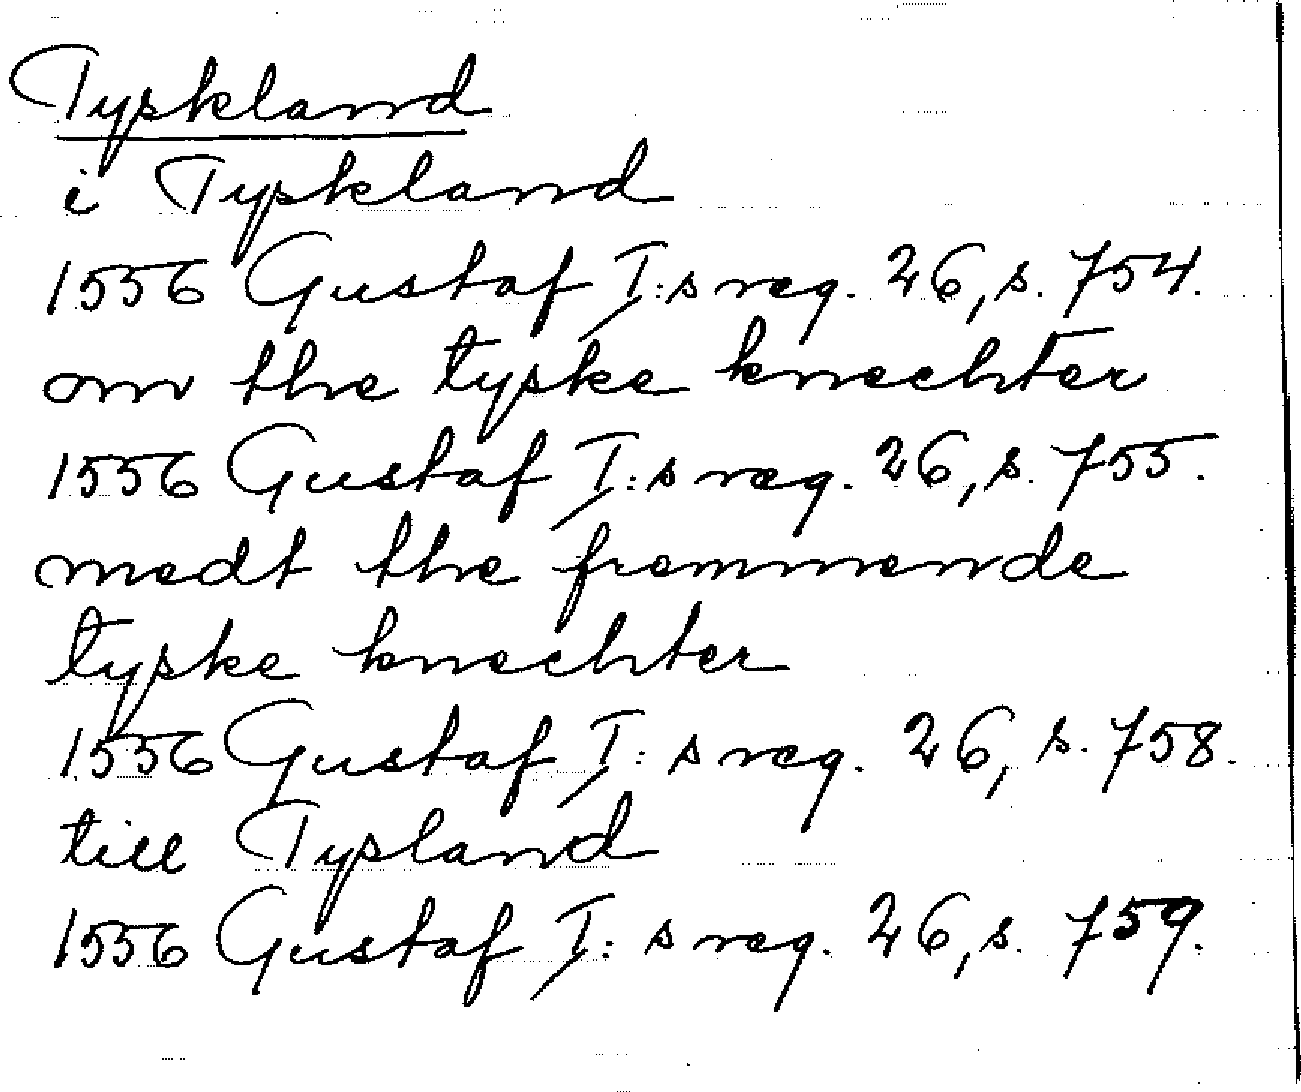 Tyskland
i Tyskland
1556 Gustaf I:s reg. 26, s. 754.
om the tyske knechter
1556 Gustaf I:s reg. 26, s. 755.
medt the fremmende
tyske knechter
1556 Gustaf I:s reg. 26, s. 758.
till Tysland
1556 Gustaf I:s reg. 26, s. 759.